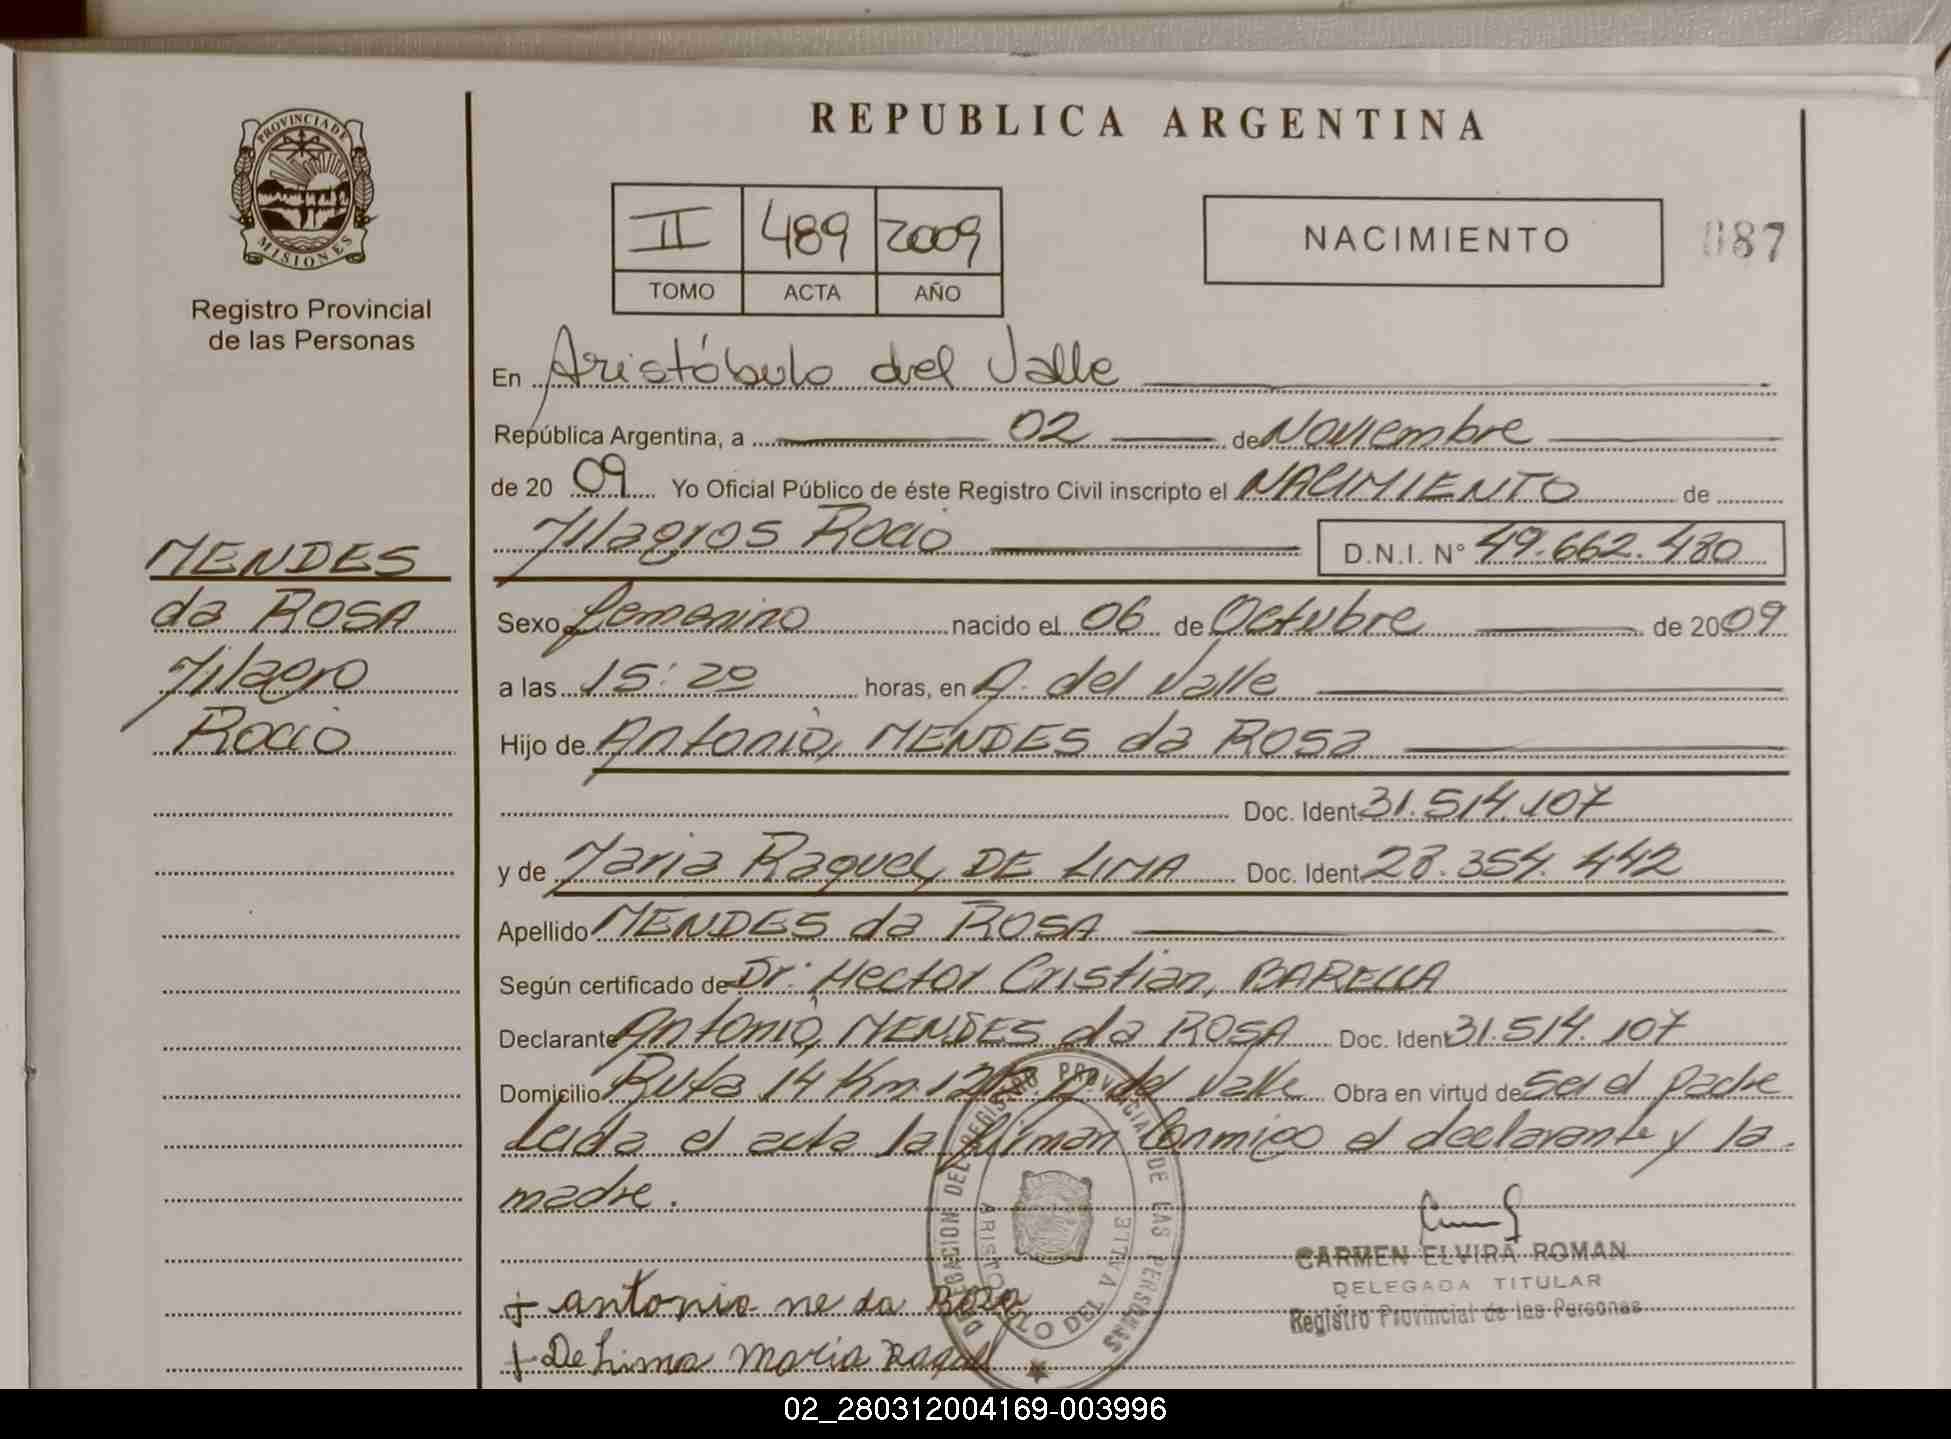 PROVINCIA DE
MISIONES
Registro Provincial
de las Personas
REPUBLICA ARGENTINA
II 489 2009
TOMO ACTA AÑO
NACIMIENTO
087
En Aristóbulo del Valle
República Argentina, a 02 de Noviembre
de 20 09 Yo Oficial Público de éste Registro Civil inscripto el NACIMIENTO de
Milagros Rocio D.N.I. N° 49.662.480
MENDES
da ROSA
Milagro
Rocio
Sexo femenino nacido el 06 de Octubre de 2009
a las 15:20 horas, en A. del Valle
Hijo de Antonio, MENDES da ROSA
Doc. Ident. 31.514.107
y de Maria Raquel, DE LIMA Doc. Ident. 28.354.442
Apellido MENDES da ROSA
Según certificado de Dr. Hector Cristian, BARELLA
Declarante Antonio, MENDES da ROSA Doc. Ident 31.514.107
Domicilio Ruta 14 Km. del Valle Obra en virtud de ser el padre
Leida el acta la firman Conmigo el declarante y la
madre.
DELEGACION DEL REGISTRO PROVINCIAL DE LAS PERSONAS
ARISTOBULO DEL VALLE
CARMEN ELVIRA ROMAN
DELEGADA TITULAR
Registro Provincial de las Personas
+ antonio me da Roza
+ De Lima Maria Raquel
02_280312004169-003996